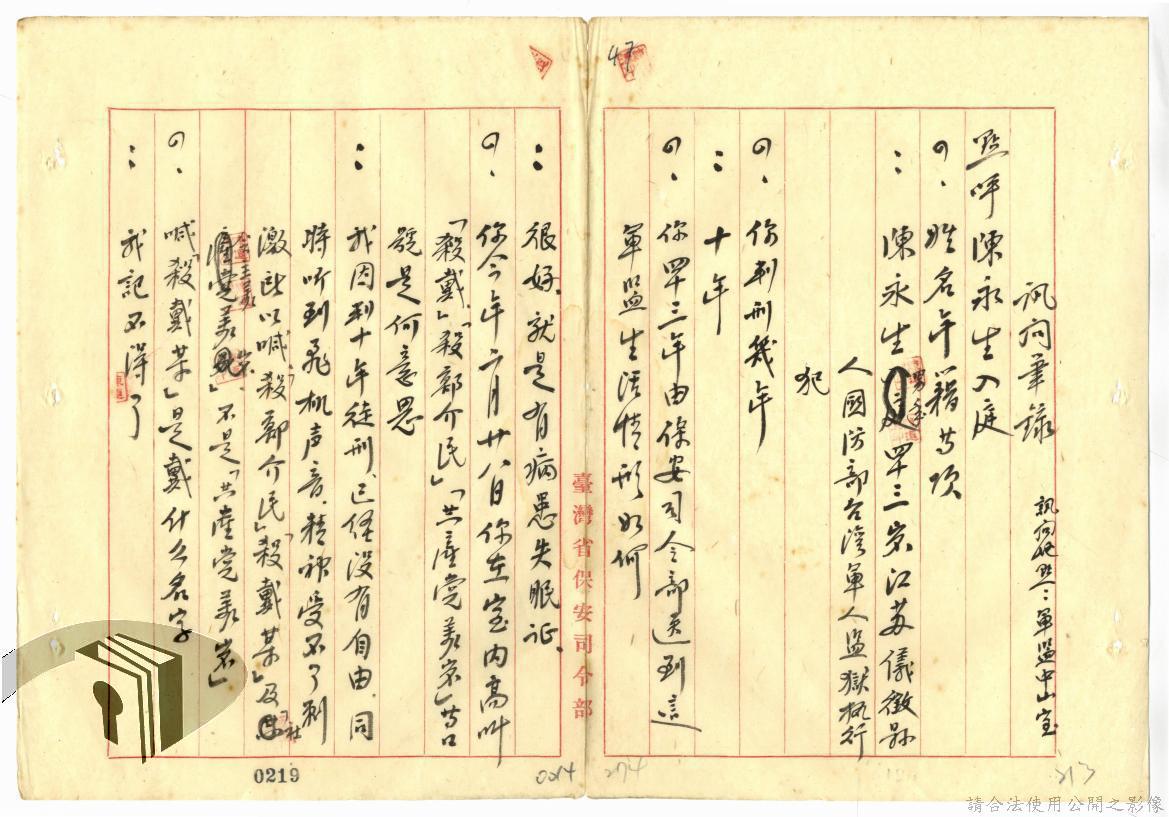 訊问筆錄
訊问地点：軍監中山室
點呼陳永生入庭
問、姓名年籍等項
：陳永生男年四十三岁江苏儀徵县
人國防部台湾軍人监獄执行
犯
問、你判刑幾年
：十年
問、你四十三年由保安司令部送到這
軍监生活情形如何
臺灣省保安司令部
：很好、就是有病患失眠证、
問、你今年六月廿八日你在室内高叫
「殺戴」「殺鄭介民」「共產党美岩」等口
號是何意思
：我因到十年徒刑、已经没有自由、同
時听到飛机声音、精神受不了刺
激所以喊「殺鄭介民」「殺戴某」及
不是「共產党美岩」
問、喊「殺戴某」是戴什么名字
：我記不得了
47
0219
0214
274
213
請合法使用公開之影像